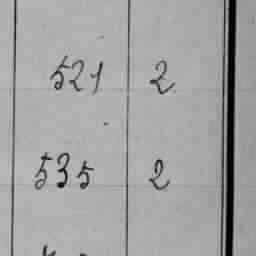 521 2
535 2